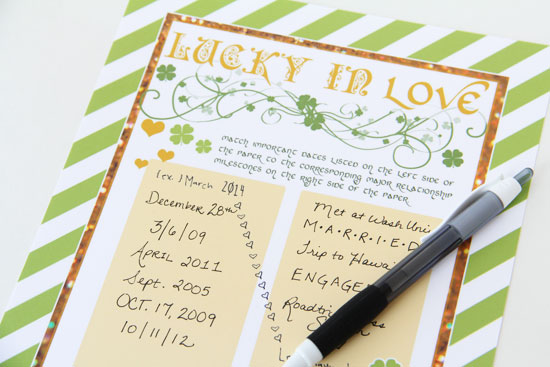 LUCKY IN LOVE
MATCH IMPORTANT DATES LISTED ON THE LEFT SIDE OF
THE PAPER TO THE CORRESPONDING MAJOR RELATIONSHIP
MILESTONES ON THE RIGHT SIDE OF THE PAPER
(ex.) March 2014
December 28th
3/6/09
April 2011
Sept. 2005
OCT. 17, 2009
10/11/12
Met at Wash Univ
M•A•R•R•I•E•D
Trip to Hawai
ENGAGE
Roadtrip